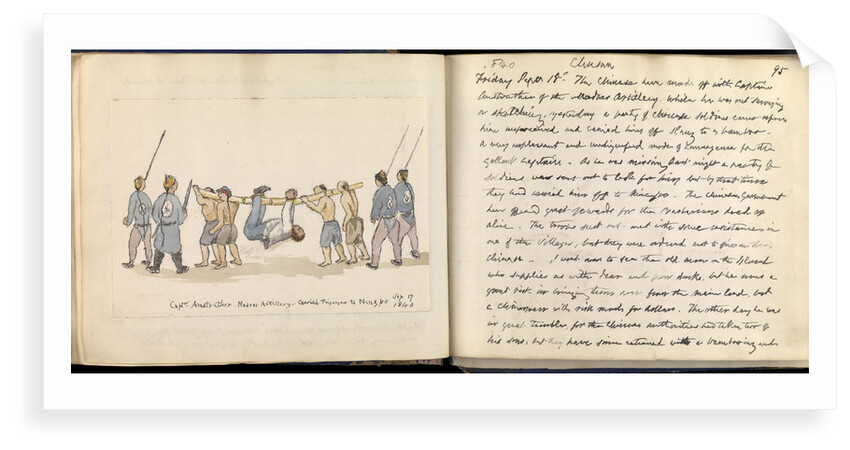 Captn. Anstruther. Madras Artillery. Carried Prisoner to Ningpo Sep. 17
1840
1840 Chusan 95
Friday Sepr 18th The Chinese have made off with Captain
Anstruther of the Madras Artillery, while he was out surveying
or sketching, yesterday a party of Chinese soldiers came upon
him unperceived and carried him off slung to a bamboo.
A very unpleasant and undignified mode of conveyance for the
gallant Captain. As he was missing last night a party of
soldiers was sent out to look for him but by that time
they had carried him off to Ningpo. The Chinese Government
have offered great rewards for the Barbarians dead or
alive. The troops sent out met with some resistance in
one of the villages, but they were ordered not to fire on the
Chinese. I went now to see the old man on the Island
who supplies us with and ducks, but he runs a
great risk in bringing them over from the main land, but
a Chinaman will risk much for dollars. The other day he was
in great trouble, for the Chinese authorities had taken two of
his sons, but they have since returned with a bambooing and